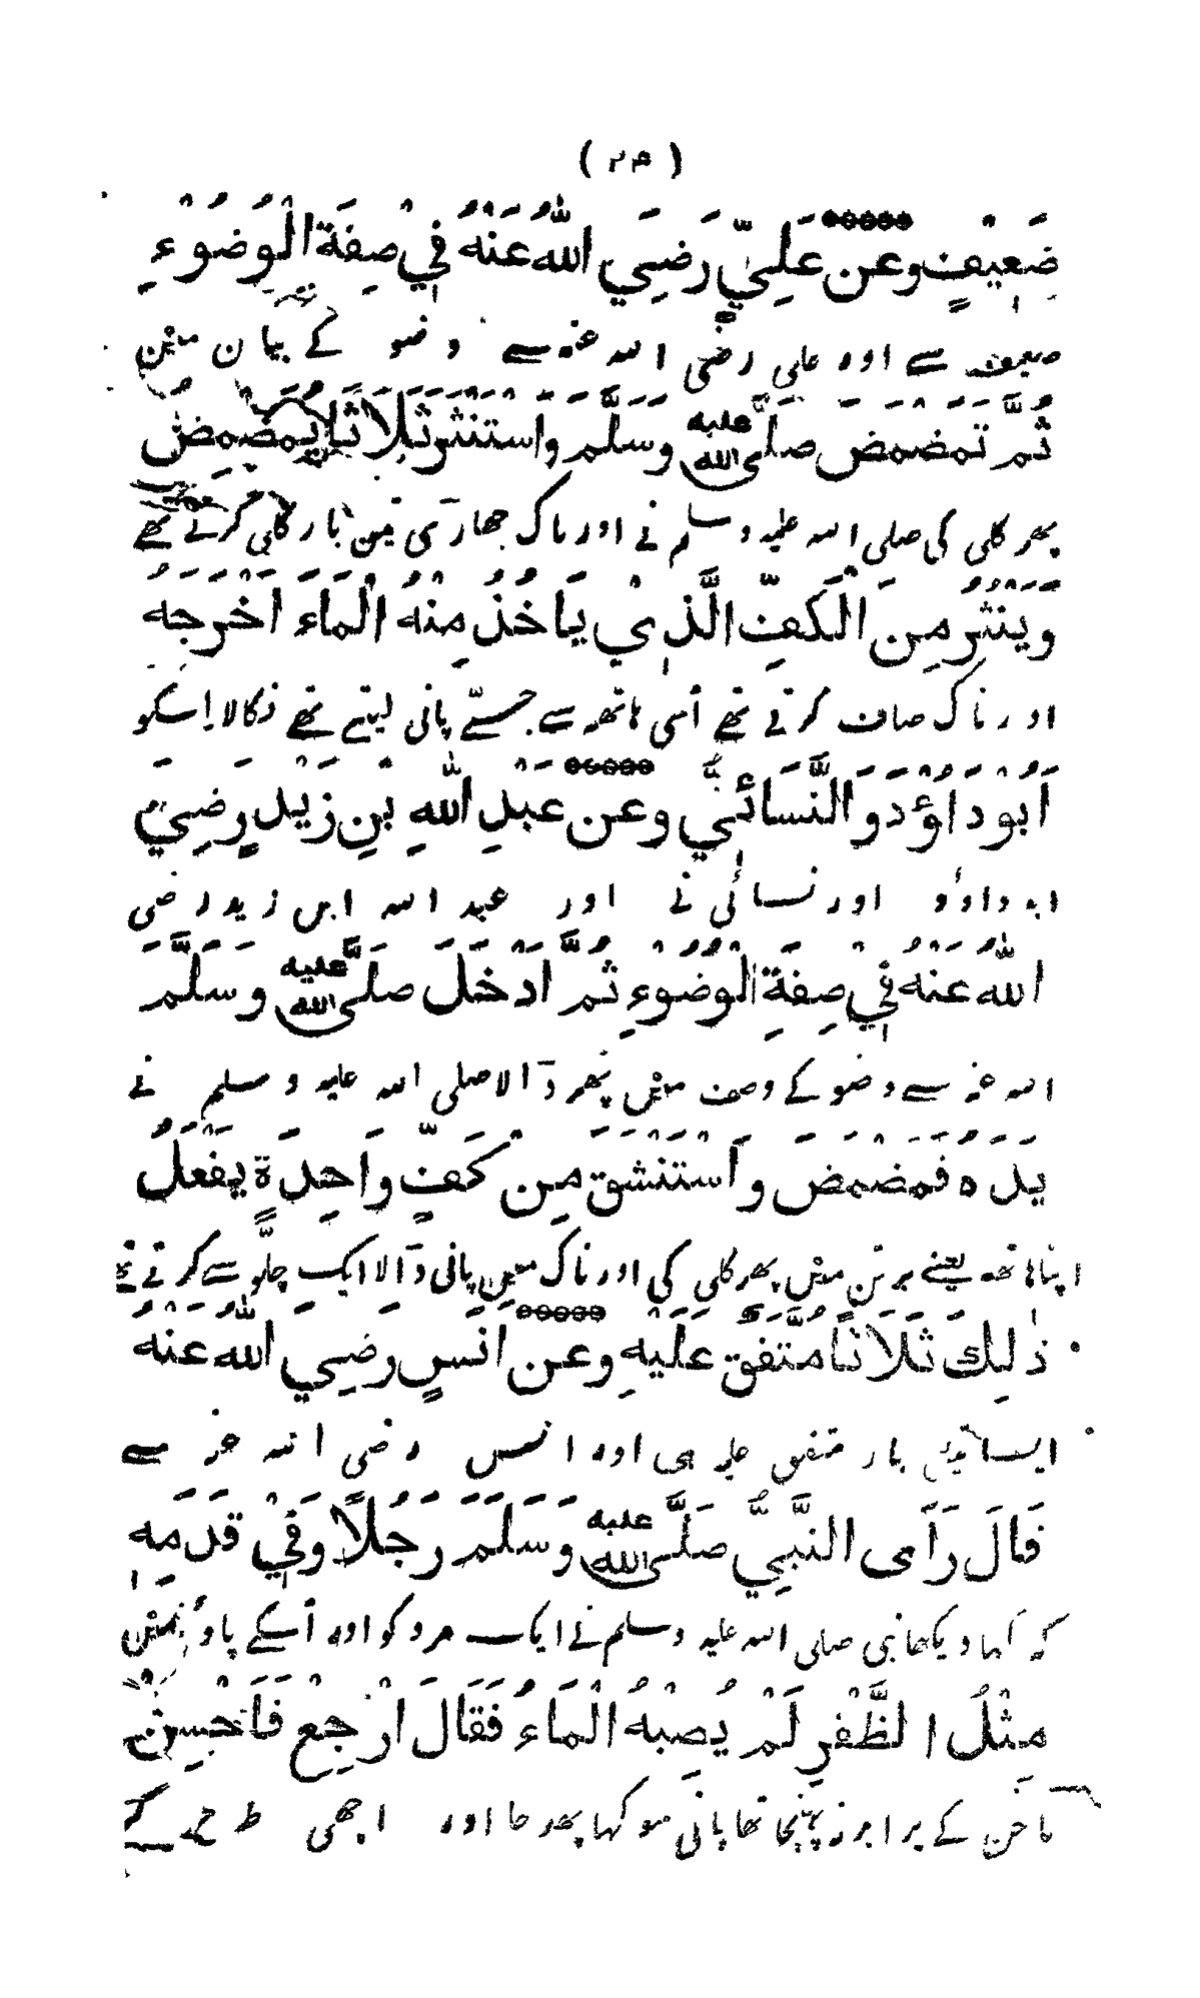 (۲۴)
ضَعِيْفٍ وَعَنْ عَلِيٍّ رَضِيَ اللهُ عَنْهُ فِيْ صِفَةِ الْوُضُوْءِ
ضعیف سے اور علی رضی اللہ عنہ سے وضو کے بیان میں
ثُمَّ تَمَضْمَضَ صَلَّى اللهُ عليه وَسَلَّمَ وَاسْتَنْثَرَ ثَلَاثًا يُمَضْمِضُ
پھر کلی کی صلی اللہ علیہ وسلم نے اور ناک جھاڑی تین بار کلی کرتے تھے
وَيَنْثُرُ مِنَ الْكَفِّ الَّذِيْ يَاخُذُ مِنْهُ الْمَاءَ اَخْرَجَهُ
اور ناک صاف کرتے تھے اُسی ہاتھ سے جسسے پانی لیتے تھے نکالا اِسکو
اَبُوْ دَاؤُدَ وَالنَّسَائِيُّ وَعَنْ عَبْدِ اللهِ بْنِ زَيْدٍ رَضِيَ
ابو داوٗد اور نسائی نے اور عبد اللہ ابن زید رضی
اللهُ عَنْهُ فِيْ صِفَةِ الْوُضُوْءِ ثُمَّ اَدْخَلَ صَلَّى اللهُ عليه وَسَلَّمَ
اللہ عنہ سے وضو کے وصف میں پھر ڈالا صلی اللہ علیہ وسلم نے
يَدَهُ فَمَضْمَضَ وَاسْتَنْشَقَ مِنْ كَفٍّ وَاحِدَةٍ يَفْعَلُ
اپنا ہاتھ یعنے برتن میں پھر کلی کی اور ناک میں پانی ڈالا ایک چلّو سے کرتے تھے
ذٰلِكَ ثَلَاثًا مُتَّفَقٌ عَلَيْهِ وَعَنْ اَنَسٍ رَضِيَ اللهُ عَنْهُ
ایسا تین بار متفق علیہ ہی اور انس رضی اللہ عنہ سے
قَالَ رَآى النَّبِيُّ صَلَّى اللهُ عليه وَسَلَّمَ رَجُلًا وَفِيْ قَدَمِهٖ
کہ کہا دیکھا نبی صلی اللہ علیہ وسلم نے ایک مرد کو اور اُسکے پاوٗں میں
مِثْلُ الظُّفْرِ لَمْ يُصِبْهُ الْمَاءُ فَقَالَ ارْجِعْ فَاَحْسِنْ
ناخن کے برابر نہ پہنچا تھا پانی سو کہا پھر جا اور اچھی طرح سے